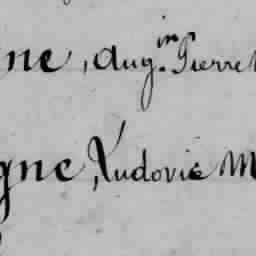 ne, Aug.in Pierre
gne, Ludovic M